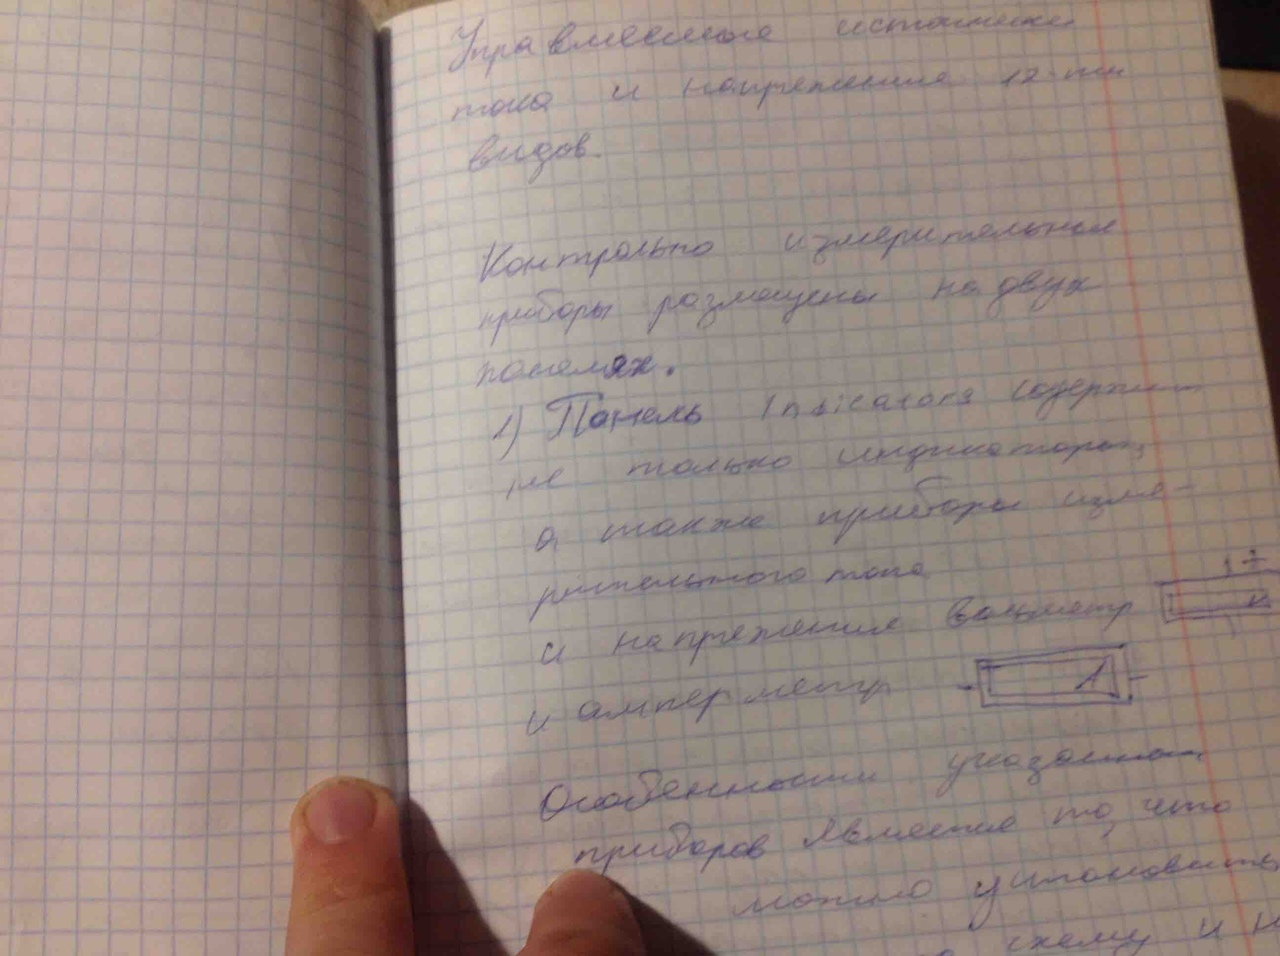 Управляемые источники
тока и напряжения 12-ти
видов.
Контрольно измерительные
приборы размещены на двух
панелях.
1) Панель Indicators содержит
не только индикаторы,
а также приборы изме-
рительного тока
и напряжения вольтметр
V
и амперметр
A
Особенностью указанных
приборов является то, что
можно установить
схему и н